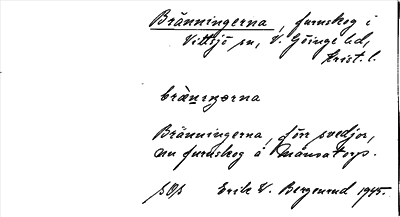 Bränningerna, furuskog i
Vittsjö sn, V. Göinge hd,
Krist. l.
bränıŋəɹna
Bränningerna, förr svedjor,
nu furuskog å Månsatorp.
Erik V. Bergstrand 1945.